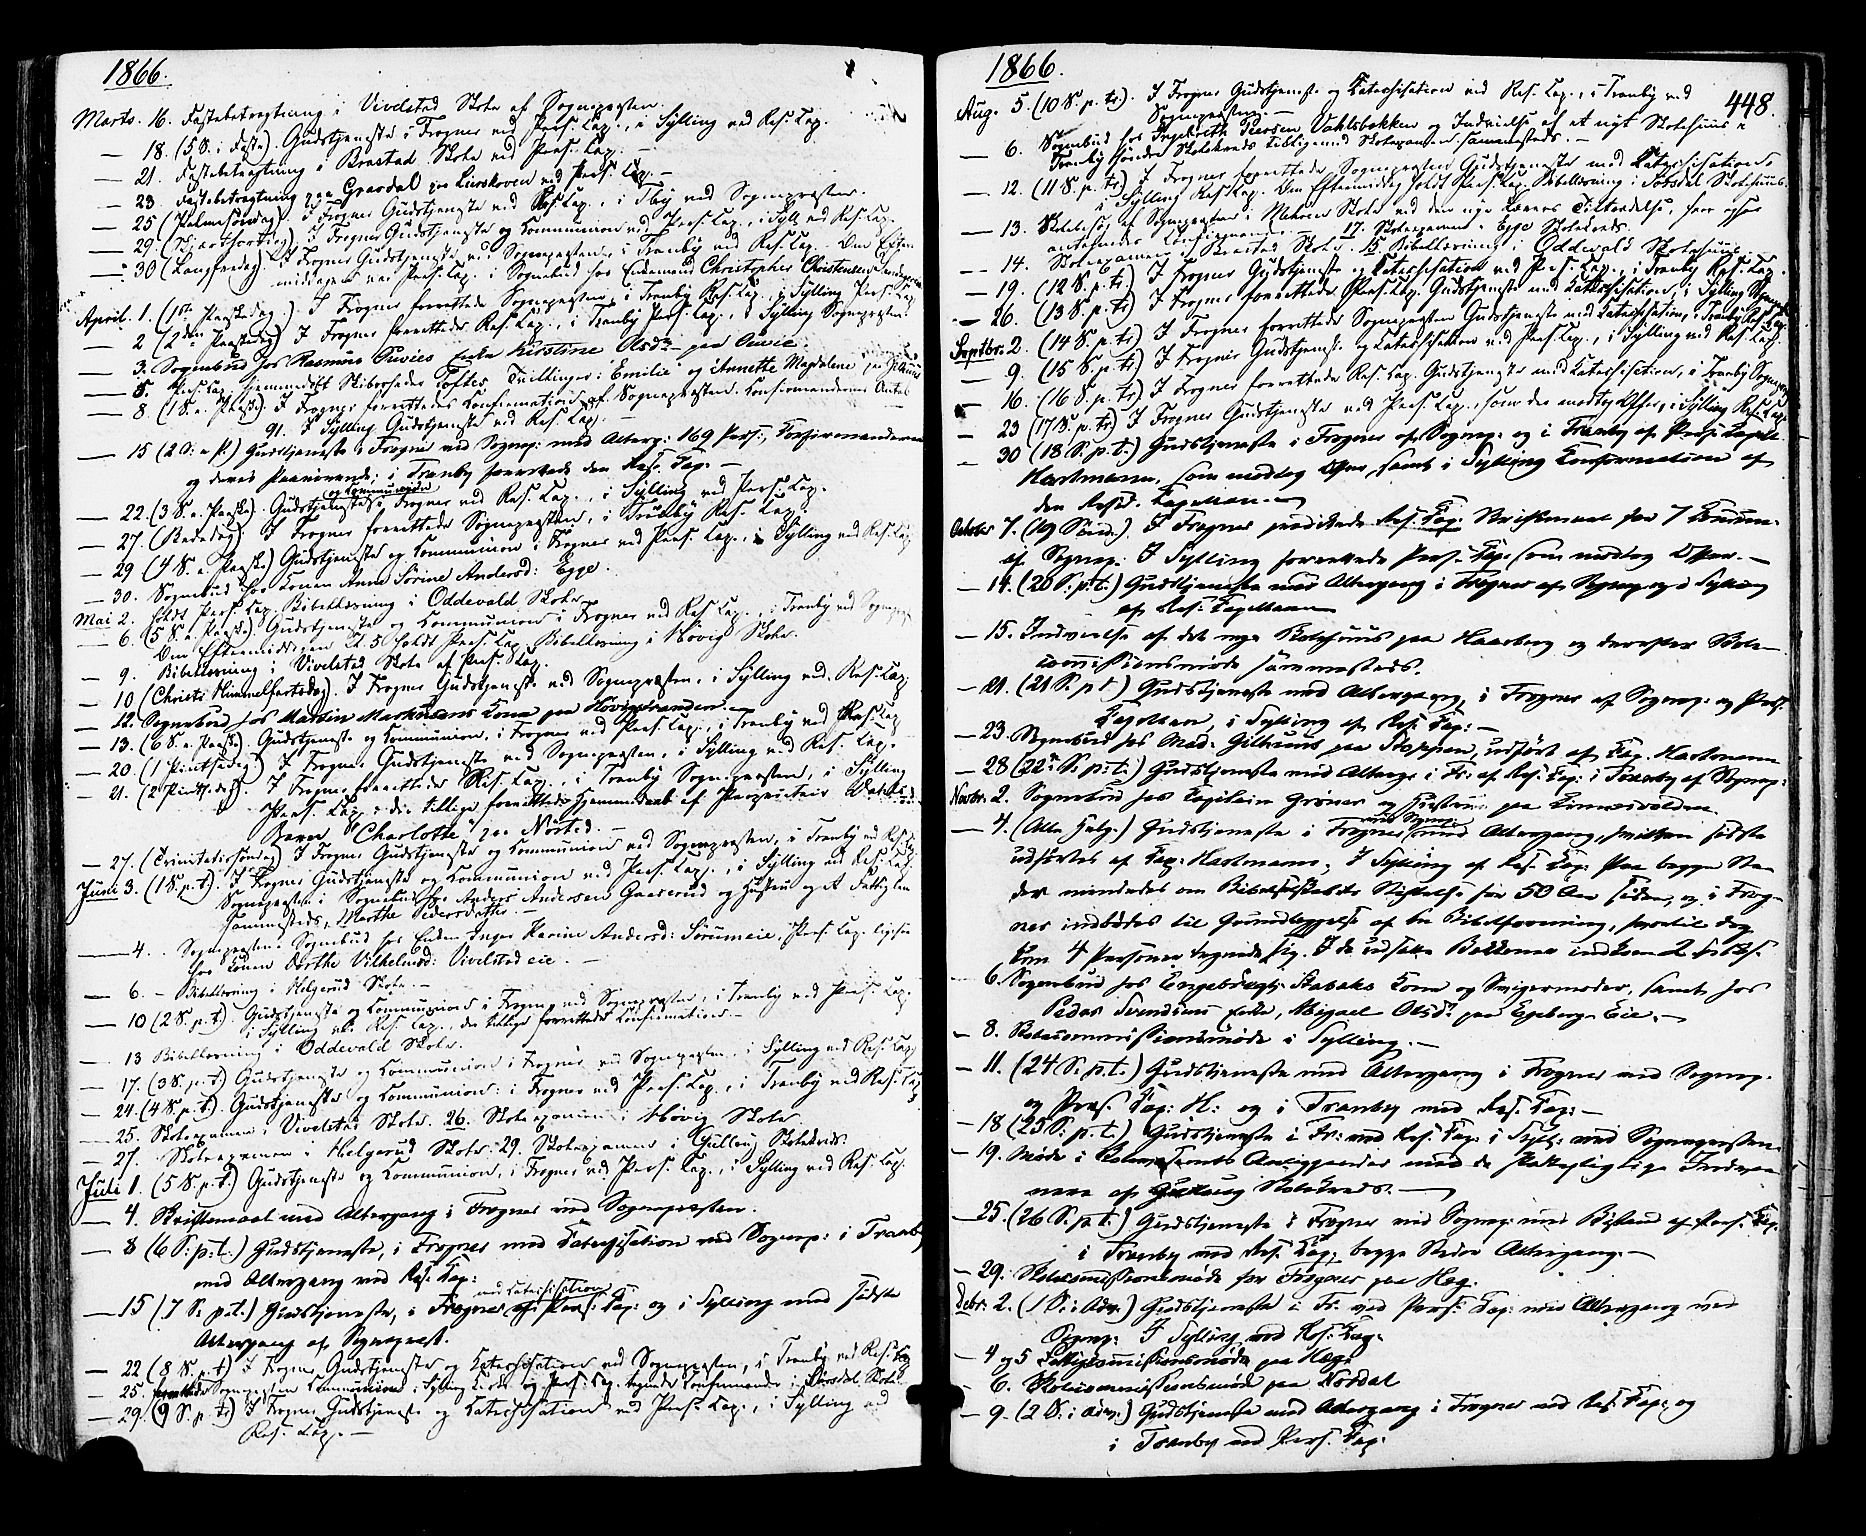 1866.
Marts. 16. Fastebetragtning i Vivelstad Skole af Sognepræsten.
— 18. (5 S. i Faste). Gudstjeneste i Frogner ved Pers. Cap., i Sylling ved Res. Cap.
— 21. Fastebetragtning i Skole ved Pers. Cap. —
— 23. Fastebetragtning paa ved Pers. Cap. —
— 25 (Palmesøndag). I Frogner Gudstjeneste ved Res. Cap., i Tby ved Sognepræsten.
— 29. (Skjærthorsdag). I Frogner Gudstjeneste og Communion ved Pers. Cap., i Syll. ved Res. Cap.
— 30 (Langfredag). I Frogner Gudstjeneste ved Sognepræsten, i Tranby ved Res. Cap. Om Efter-
middagen var Pers. Cap. i Sognebud hos Christopher Christensen
April. 1. (1ste Paaskedag). I Frogner forrettede Sognepræsten, i Tranby Res. Cap., i Sylling Pers. Cap.
— 2 (2den Paaskedag) I Frogner forrettede Res. Cap., i Tranby Pers. Cap., i Sylling Sognepræsten.
— 3. Sognebud hos Rasmus Enke Kirstine Olsdr. paa
— 5. Pers. Cap. hjemmedøbt Skibsreder Toftes Tvillinger: Emilie og Annette Magdalene paa
— 8. (1 S. e. Paaske). I Frogner forrettedes Confirmation af Sognepræsten. Confirmandernes Antal
91. I Sylling Gudstjeneste ved Res. Cap.
— 15 (2 S: e P.) Gudstjeneste i Frogner ved Sognep: med Alterg: 169 Pers:, Confirmanderne
og deres Paarørende; i Tranby forrettede den Res. Cap. —
— 22. (3 S. e. Paaske). Gudstjeneste og Communion i Frogner ved Res. Cap., i Sylling ved Pers. Cap.
— 27. (Bededag). I Frogner forrettede Sognepræsten, i Tranby Res. Cap.
— 29 (4 S. e. Paaske) Gudstjeneste og Communion i Frogner ved Pers. Cap., i Sylling ved Res. Cap.
— 30. Sognebud hos Konen Anne Sørine Andersd: Egge.
Mai 2. Holdt Pers. Cap. Bibellæsning i Oddevald Skole.
— 6. (5 S. e. Paaske). Gudstjeneste og Communion i Frogner ved Res. Cap., i Tranby ved Sognepr.
Om Eftermiddagen Kl. 5 holdt Pers. Cap. Bibellæsning i Høvig Skole.
— 9. Bibellæsning i Vivelstad Skole af Pers. Cap.
— 10 (Christi Himmelfartsdag). I Frogner Gudstjeneste ved Sognepræsten, i Sylling ved Res. Cap.
— 12. Sognebud hos Martin Kone paa
— 13. (6 S. e. Paaske). Gudstjeneste og Communion, i Frogner ved Pers. Cap., i Tranby ved Res. Cap
— 20. (1 Pintsedag) I Frogner Gudstjeneste ved Sognepræsten, i Sylling ved Res. Cap.
— 21. (2 Pintsedag). I Frogner forrettede Res. Cap., i Tranby Sognepræsten, i Sylling
Pers. Cap., der tillige forrettede Hjemmedaab af Proprietair
Barn "Charlotte" paa —
— 27. (Trinitatissøndag) I Frogner Gudstjeneste og Communion ved Sognepræsten, i Tranby ved Res. Cap
Juni 3. (1 S. p. t.). I Frogner Gudstjeneste og Communion ved Pers. Cap., i Sylling ved Res. Cap.
Sognepræsten i Sognebud hos Anders Andersen Gaaserud og Hustru og et Fattiglem
sammesteds, Marthe Pedersdatter. —
— 4. Sognepræsten Sognebud hos Enken Inger Karine Andersd: Pers. Cap. ligesaa
hos Konen Dorthe Vilhelmsd: Vivelstadeie. —
— 6. - Bibellæsning i Helgerud Skole. —
— 10 (2 S. p. t.). Gudstjeneste og Communion i Frogner ved Sognepræsten, i Tranby ved Pers. Cap.
i Sylling ved Res. Cap., der tillige forrettede Confirmation. —
— 13 Bibellæsning i Oddevald Skole.
— 17. (3 S. p. t.) Gudstjeneste og Communion i Frogner ved Sognepræsten, i Sylling ved Res. Cap.
— 24. (4 S. p. t.). Gudstjeneste og Communion: i Frogner ved Pers. Cap., i Tranby ved Res. Cap
— 25. Skoleexamen i Vivelstad Skole. 26. Skoleexamen i Høvig Skole.
— 27. Skoleexamen i Helgerud Skole. 29. Skoleexamen i Gullaug Skolekreds.
Juli 1. (5 S. p. t.) Gudstjeneste og Communion, i Frogner ved Pers. Cap., i Sylling ved Res. Cap.
— 4. Skriftemaal med Altergang i Frogner ved Sognepræsten.
— 8 (6 S: p. t.) Gudstjeneste, i Frogner med Catechisation ved Sognep: i Tranby
med Altergang ved Res. Cap:
— 15 (7 S: p. t.) Gudstjeneste, i Frogner med Catechisation af Pers: Cap: og i Sylling med sidste
Altergang af Sognepræst.
— 22 (8 S. p. t) I Frogner Gudstjeneste og Catechisation ved Sognepræsten, i Tranby ved Res. Cap
— 25. Sognepræsten Communion i Sylling Kirke og Pers. Cap. Confirmander i Skole.
— 29. (9 S. p. tr) I Frogner Gudstjeneste og Catechisation ved Pers. Cap., i Sylling ved
Res. Cap. —
1866.
448.
Aug. 5. (10 S. p. tr). I Frogner Gudstjeneste og Catechisation ved Res. Cap., i Tranby ved
Sognepræsten. —
— 6. Sognebud hos Iversen Vahlsbakken og Indvielse af et nyt Skolehuus i
Tranby søndre Skolekreds tilligemed Skoleexamen sammesteds. —
— 12. (11 S. p. tr) I Frogner forrettede Sognepræsten Gudstjeneste med Catechisation,
i Sylling Res. Cap. Om Eftermiddag holdt Pers. Cap. Bibellæsning i Skolehuus.
— 13. Skolebesøg af Sognepræsten i Skole ved den nye Lærers Tiltrædelse, hvor ogsaa
antegnedes Confirmander. — 17. Skoleexamen i Egge Skolekreds.
— 14. Skoleexamen i Skole. 15 Bibellæsning i Oddevald Skolehuus.
— 19. (12 S. p. tr) I Frogner Gudstjeneste og Catechisation ved Pers. Cap., i Tranby Res. Cap.
— 26. (13 S. p. tr) I Frogner forrettede Pers. Cap. Gudstjeneste med Catechisation, i Sylling Sognepr.
Septbr. 2. (14 S. p. tr) I Frogner forrettede Sognepræsten Gudstjeneste med Catechisation, i Tranby Res. Cap.
— 9. (15 S. p. tr) I Frogner Gudstjeneste og Catechisation ved Pers. Cap., i Sylling ved Res. Cap.
— 16. (16 S. p. tr) I Frogner forrettede Res. Cap. Gudstjeneste med Catechisation, i Tranby Sognepr
— 23 (17 S. p. tr) I Frogner Gudstjeneste ved Pers. Cap., som der modtog Offer, i Sylling Res. Cap.
— 30 (18 S. p. t.) Gudstjeneste i Frogner af Sognep: og i Tranby af Pers: Capell.
Hartmann, som modtog Offer, samt i Sylling Confirmation af
den Resid. Capellan. —
October 7. (19 Sønd.) I Frogner prædikede Res. Cap. Skriftemaal for 7 Commu-
af Sognep. I Sylling forrettede Pers. Cap. som modtog Offer. —
— 14. (20 S. p. t.) Gudstjeneste med Altergang i Frogner af Sognep og i Sylling
af Res. Capellanen
— 15. Indvielse af det nye Skolehuus paa Haasberg og derefter Skole-
commissionsmøde sammesteds.
— 21. (21 S. p t) Gudstjeneste med Altergang, i Frogner af Sognep: og Pers.
Capellan, i Sylling af Res. Cap: —
— 23. Sognebud hos Mad: paa Stoppen, udført af Cap. Hartmann
— 28 (22 S: p: t.) Gudstjeneste med Alterg: i Fr: af Res. Cap: i Tranby af Sognep:
Novbr. 2. Sognebud hos Capitain Grøner og Hustru paa
— 4. (Alle Helg.) Gudstjeneste i Frogner ved Sognep: med Altergang, hvilken sidste
udførtes af Cap: Hartmann; I Sylling af Res. Cap: Paa begge Ste-
der mindedes om Bibelselskabets Stiftelse for 50 Aar siden, og i Frog-
ner indbødes til Grundlæggelse af en Bibelforening, hvortil dog
kun 4 Personer tegnede sig. I de udsatte Bækkener indkom 2
— 6. Sognebud hos Kone og Svigermoder, samt hos
Peder Svendsens Enke, Abigael Olsdr. paa Egeberg Eie. —
— 8. Skolecommissionsmøde i Sylling. —
— 11. (24 S. p. t.) Gudstjeneste med Altergang i Frogner ved Sognep.
og Pers. Cap: H: og i Tranby ved Res. Cap: —
— 18 (25 S: p. t.) Gudstjeneste i Fr: ved Res. Cap: i Syll: ved Sognepræsten
— 19. Møde i Anliggender med de
mere af Gullaug Skolekreds. —
— 25. (26 S: p. t.) Gudstjeneste i Frogner ved Sognep: med Bistand af Pers. Cap.
i Tranby ved Res. Cap, begge Steder Altergang. —
— 29. Skolecommissionsmøde for Frogner paa Heg.
Debr. 2. (1 S: i Adv.) Gudstjeneste i Fr. ved Pers: Cap: med Altergang ved
Sognep: I Sylling ved Res: Cap.
— 4 og 5 Fattigcommissionsmøde paa Heg.
— 6. Skolecommissionsmøde paa Nordal
— 9. (2 S: i Adv.) Gudstjeneste med Altergang i Frogner ved Res. Cap: og
i Tranby ved Pers. Cap: